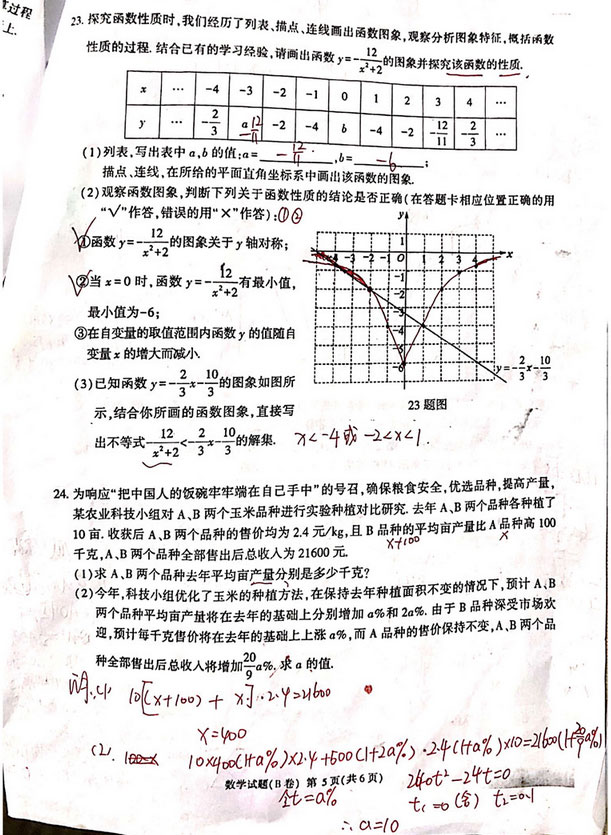 过程
上.
23. 探究函数性质时,我们经历了列表、描点、连线画出函数图象,观察分析图象特征,概括函数
性质的过程. 结合已有的学习经验,请画出函数 y=-12/(x²+2) 的图象并探究该函数的性质.
x … -4 -3 -2 -1 0 1 2 3 4 …
y … -2/3 a -12/11 -2 -4 b -4 -2 -12/11 -2/3 …
(1)列表,写出表中 a,b 的值:a= -12/11 ,b= -6 ;
描点、连线,在所给的平面直角坐标系中画出该函数的图象.
(2)观察函数图象,判断下列关于函数性质的结论是否正确(在答题卡相应位置正确的用
“√”作答,错误的用“×”作答):①②
√①函数 y=-12/(x²+2) 的图象关于 y 轴对称;
√②当 x=0 时,函数 y=-12/(x²+2) 有最小值,
最小值为-6;
③在自变量的取值范围内函数 y 的值随自
变量 x 的增大而减小.
(3)已知函数 y=-2/3x-10/3 的图象如图所
示,结合你所画的函数图象,直接写
出不等式-12/(x²+2)<-2/3x-10/3 的解集. x<-4或-2<x<1.
y
1
-4 -3 -2 -1 O 1 2 3 4 x
-1
-2
-3
-4
-5
-6
y=-2/3x-10/3
23 题图
24. 为响应“把中国人的饭碗牢牢端在自己手中”的号召,确保粮食安全,优选品种,提高产量,
某农业科技小组对 A、B 两个玉米品种进行实验种植对比研究. 去年 A、B 两个品种各种植了
10 亩. 收获后 A、B 两个品种的售价均为 2.4 元/kg,且 B 品种的平均亩产量比 A 品种高 100
x+100 x
千克,A、B 两个品种全部售出后总收入为 21600 元.
(1)求 A、B 两个品种去年平均亩产量分别是多少千克?
(2)今年,科技小组优化了玉米的种植方法,在保持去年种植面积不变的情况下,预计 A、B
两个品种平均亩产量将在去年的基础上分别增加 a%和 2a%. 由于 B 品种深受市场欢
迎,预计每千克售价将在去年的基础上上涨 a%,而 A 品种的售价保持不变,A、B 两个品
种全部售出后总收入将增加20/9a%. 求 a 的值.
10[(x+100)+x]·2.4=21600
x=400
(2). 10×400(1+a%)×2.4+500(1+2a%)·2.4(1+a%)×10=21600(1+20/9a%)
数学试题(B 卷) 第 5 页(共 6 页)
240t²-24t=0
令t=a%
t₁=0(舍) t₂=0.1
∴a=10